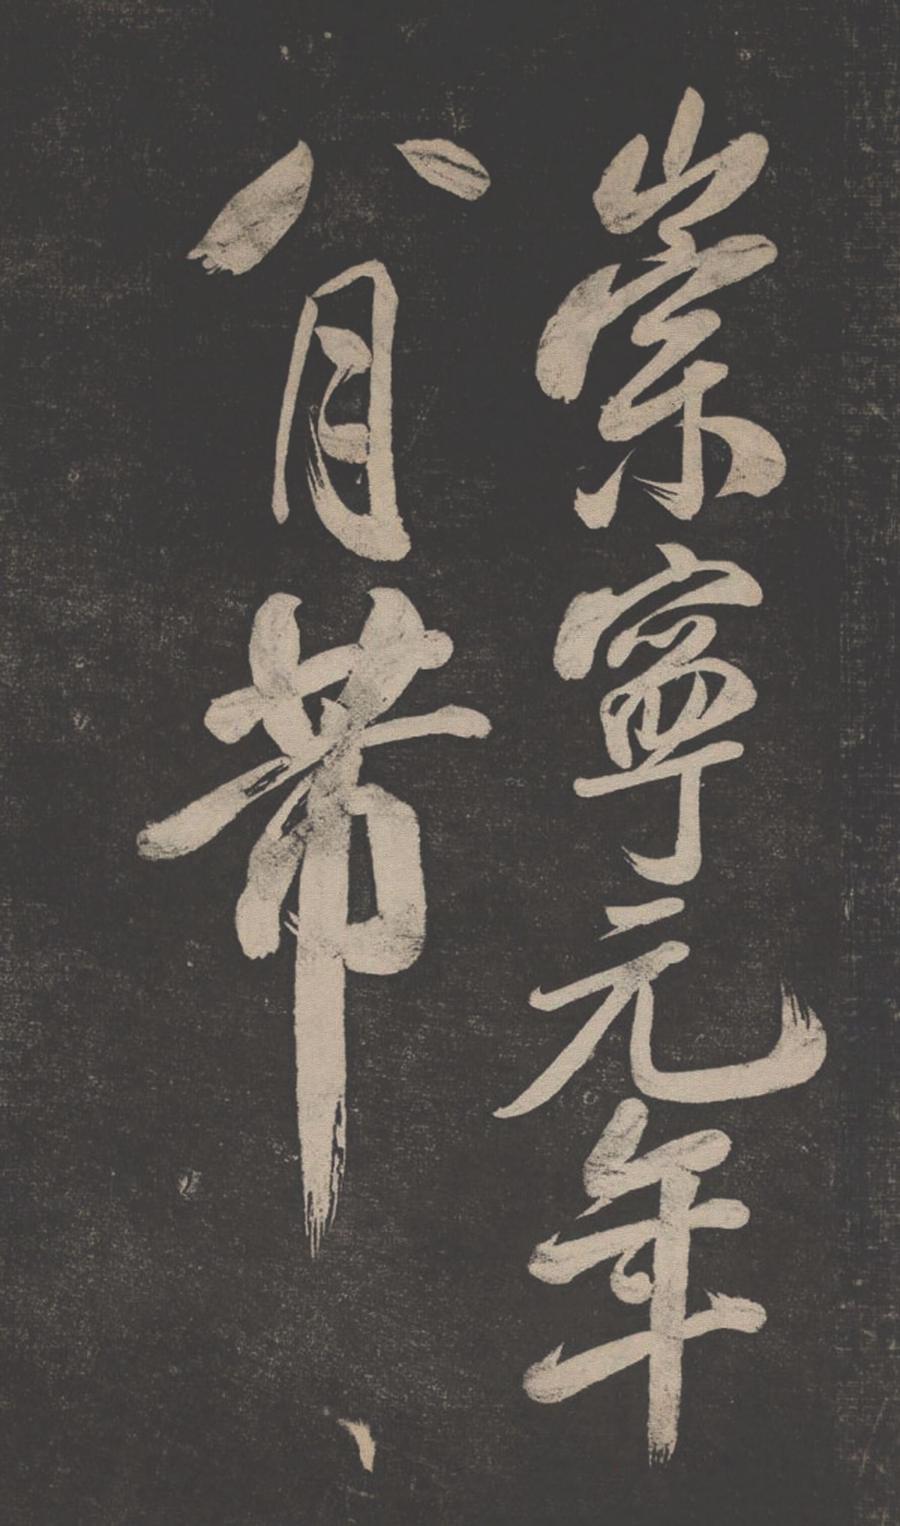 崇寧元年
八月芾